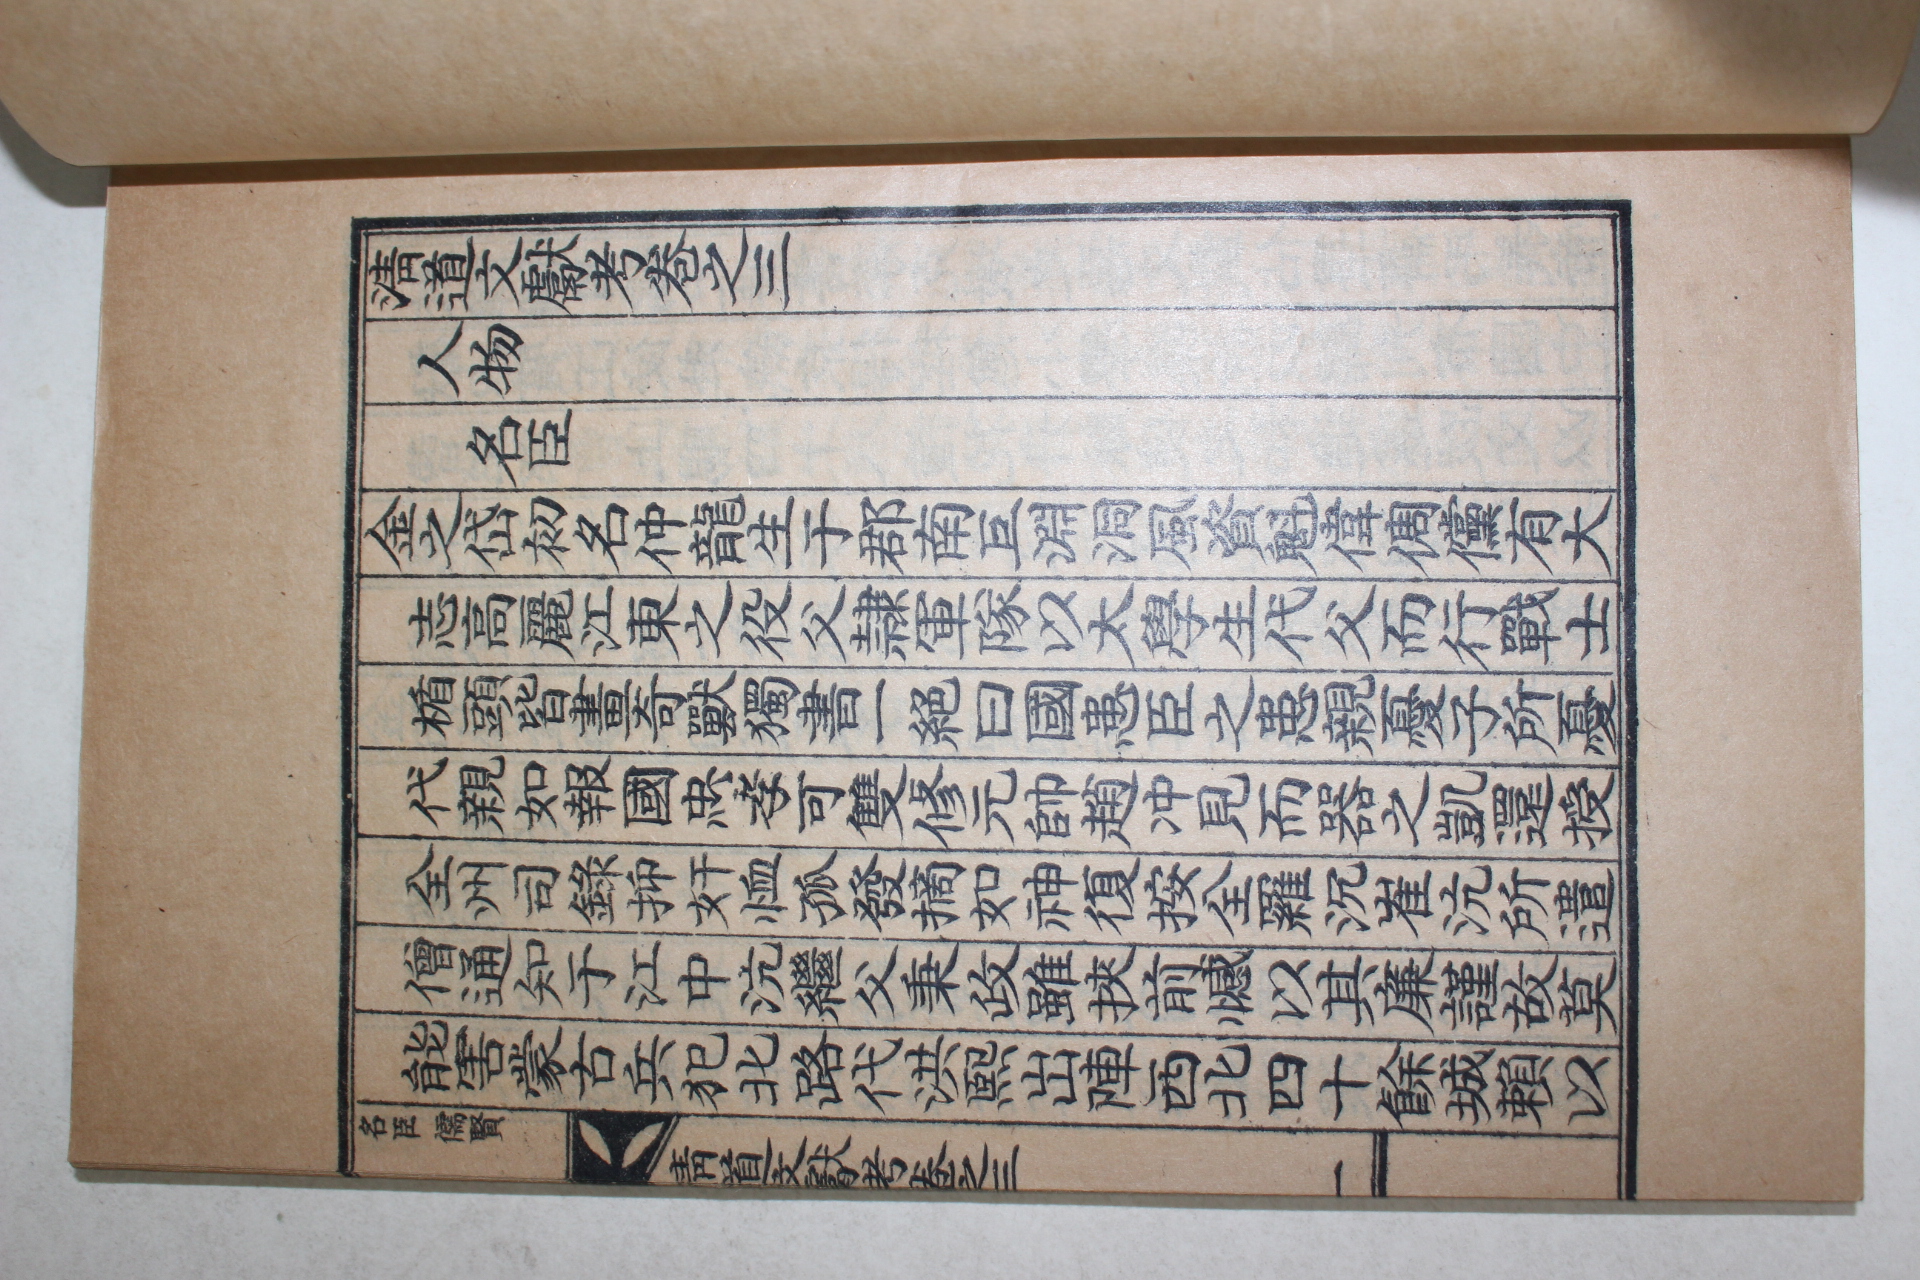 淸道文獻考卷之三
人物
名臣
金之岱初名仲龍生于郡南巨淵洞風資魁偉倜儻有大
志高麗江東之役父隷軍隊以太學生代父而行戰士
楯頭皆畫奇獸獨書一絕曰國患臣之患親憂子所憂
代親如報國忠孝可雙修元帥趙冲見而器之凱還授
全州司錄抑奸恤孤發摘如神復按全羅沉崔沆所遣
僧通知于江中沆繼父秉政雖挾前憾以其廉謹故莫
能害蒙古兵犯北路代洪熙出陣西北四十餘城賴以
名臣 儒賢
淸道文獻考卷之三
一